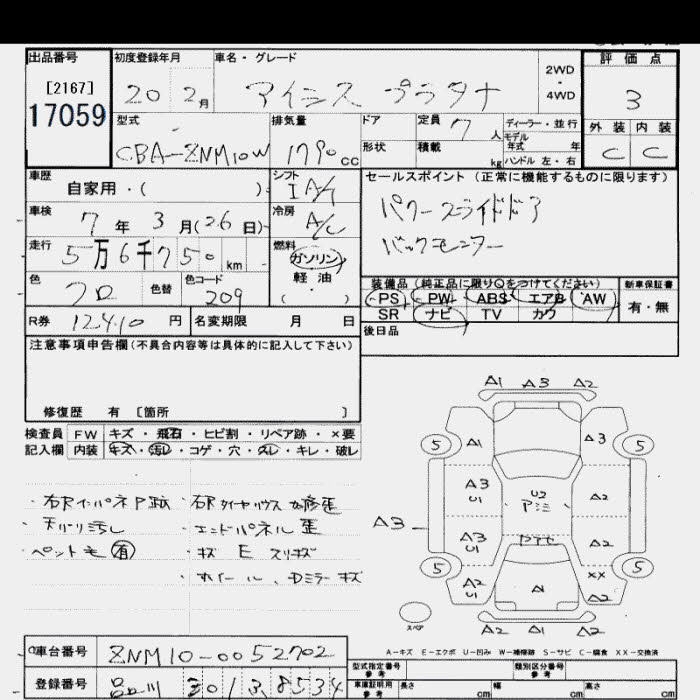 出品番号 初度登録年月 車名・グレード 評価点
[2167] 2WD
17059 20 2月 アイシス プラタナ ・ 3
4WD
型式 排気量 ドア 定員 7 人 ディーラー・並行 外装 内装
モデル
CBA-ZNM10W 1790cc 形状 積載 kg 年式 年 C C
ハンドル 左・右
車歴 シフト セールスポイント (正常に機能するものに限ります)
自家用・( ) I A/T パワースライドドア
車検 7年 3月(26日) 冷房 A/C バックモニター
走行 5万6千750km 燃料 ガソリン
軽油
( )
色 クロ 色替 色コード 209 装備品(純正品に限りQをつけてください) 新車保証書
PS PW ABS エアB AW 有・無
SR ナビ TV カワ
R券 12,410円 名変期限 月 日 後日品
注意事項申告欄(不具合内容等は具体的に記入して下さい)
修復歴 有 [箇所 ]
検査員 FW キズ・飛石・ヒビ割・リペア跡・×要
記入欄 内装 キズ・汚レ・コゲ・穴・スレ・キレ・破レ
・右Rインパネ
・天バリ汚レ
・エンドパネル 歪
・ペット毛 有
・キズ E スリキズ
・ホイール、Dミラーキズ
A1 A3 A2
5 A1 A3 5
A3 U1 U2 A2
アミミ
A3
A3 U1 A2
5 XX 5
A2 U1 A1 A2
スペア
A2 A1 A2
A-キズ E-エクボ U-凹み W-補修跡 S-サビ C-腐食 XX-交換済
車台番号 ZNM10-0052702 型式指定番号 参考 類別区分番号 参考
登録番号 品川 301 3 8534 車庫証明用 参考 長さ cm 幅 cm 高さ cm